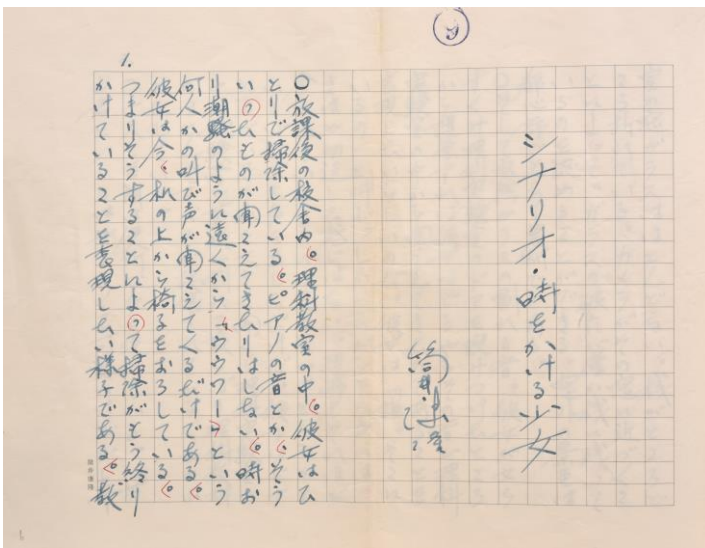 9
シナリオ・時をかける少女
筒井康隆
○放課後の校舎内。理科教室の中。彼女はひ
とりで掃除している。ピアノの音とか、そう
いったものが聞こえてきたりはしない。時お
り潮騒のように遠くから「ウウワー」という
何人かの叫び声が聞こえてくるだけである。
彼女は今、机の上から椅子をおろしている。
つまりそうすることによって掃除がもう終り
かけていることを表現したい様子である。
1.
筒井康隆